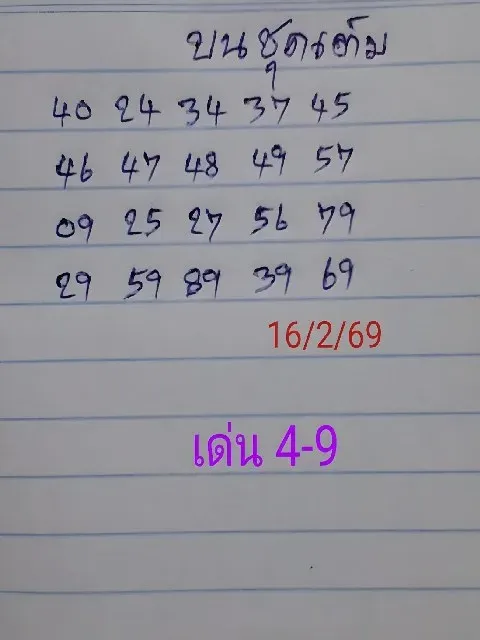 บนชุดเต้ม
40 24 34 37 45
46 47 48 49 57
09 25 27 56 79
29 59 89 39 69
16/2/69
เด่น 4-9